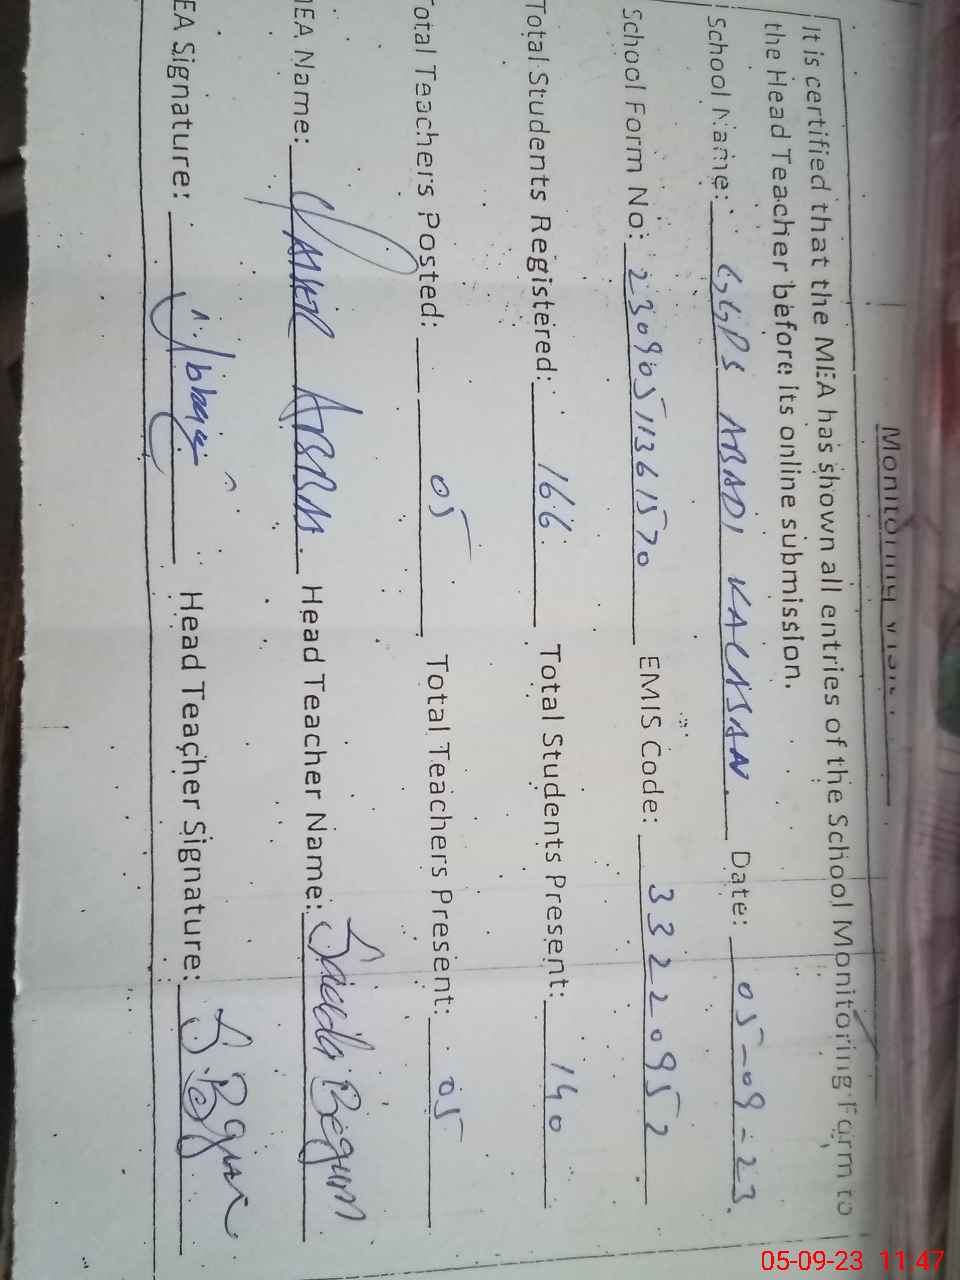 Monitoring Visit
It is certified that the MEA has shown all entries of the School Monitoring Form to
the Head Teacher before its online submission.
School Name: GGPS ABADI KALASAN. Date: 05-09-23.
School Form No: 23090511361570 EMIS Code: 33220952
Total Students Registered: 166 Total Students Present: 140
Total Teachers Posted: 05 Total Teachers Present: 05
MEA Name: ASAM. Head Teacher Name: Saida Begum
EA Signature: Head Teacher Signature: S.Begum
05-09-23 11:47